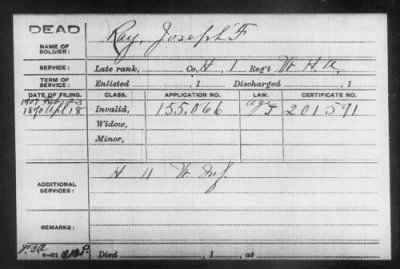 DEAD
NAME OF SOLDIER: Ray, Joseph F
SERVICE: Late rank, Co. H, 1 Reg't W. H. A.
TERM OF SERVICE: Enlisted , 1 Discharged , 1
DATE OF FILING. CLASS. APPLICATION NO. LAW. CERTIFICATE NO.
1890 Apl 18 Invalid, 155,066 J 201591
Widow,
Minor,
ADDITIONAL SERVICES: H 11 W. Inf.
REMARKS:
Died , 1 , at